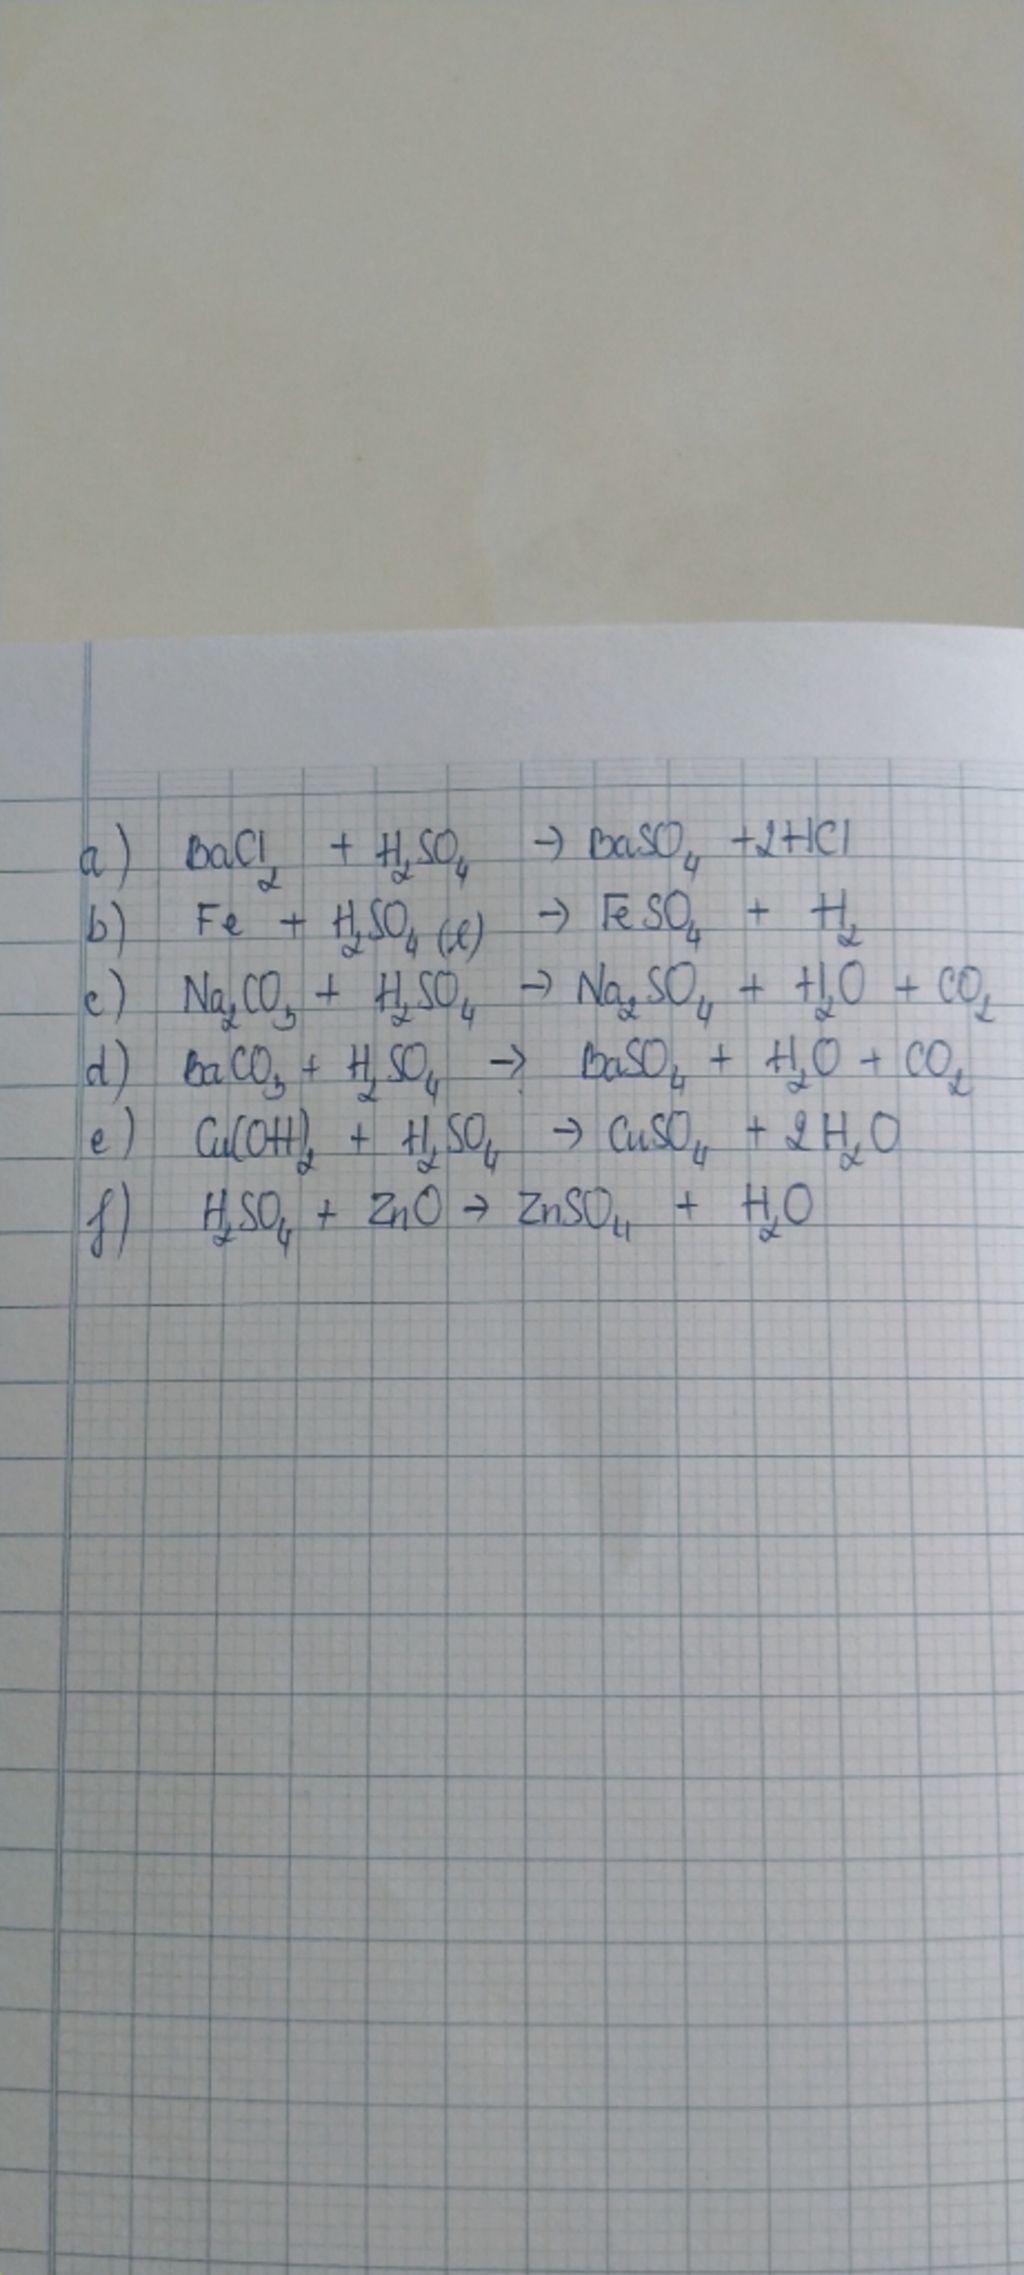 a) BaCl₂ + H₂SO₄ → BaSO₄ + 2HCl
b) Fe + H₂SO₄ (l) → FeSO₄ + H₂
c) Na₂CO₃ + H₂SO₄ → Na₂SO₄ + H₂O + CO₂
d) BaCO₃ + H₂SO₄ → BaSO₄ + H₂O + CO₂
e) Cu(OH)₂ + H₂SO₄ → CuSO₄ + 2H₂O
f) H₂SO₄ + ZnO → ZnSO₄ + H₂O